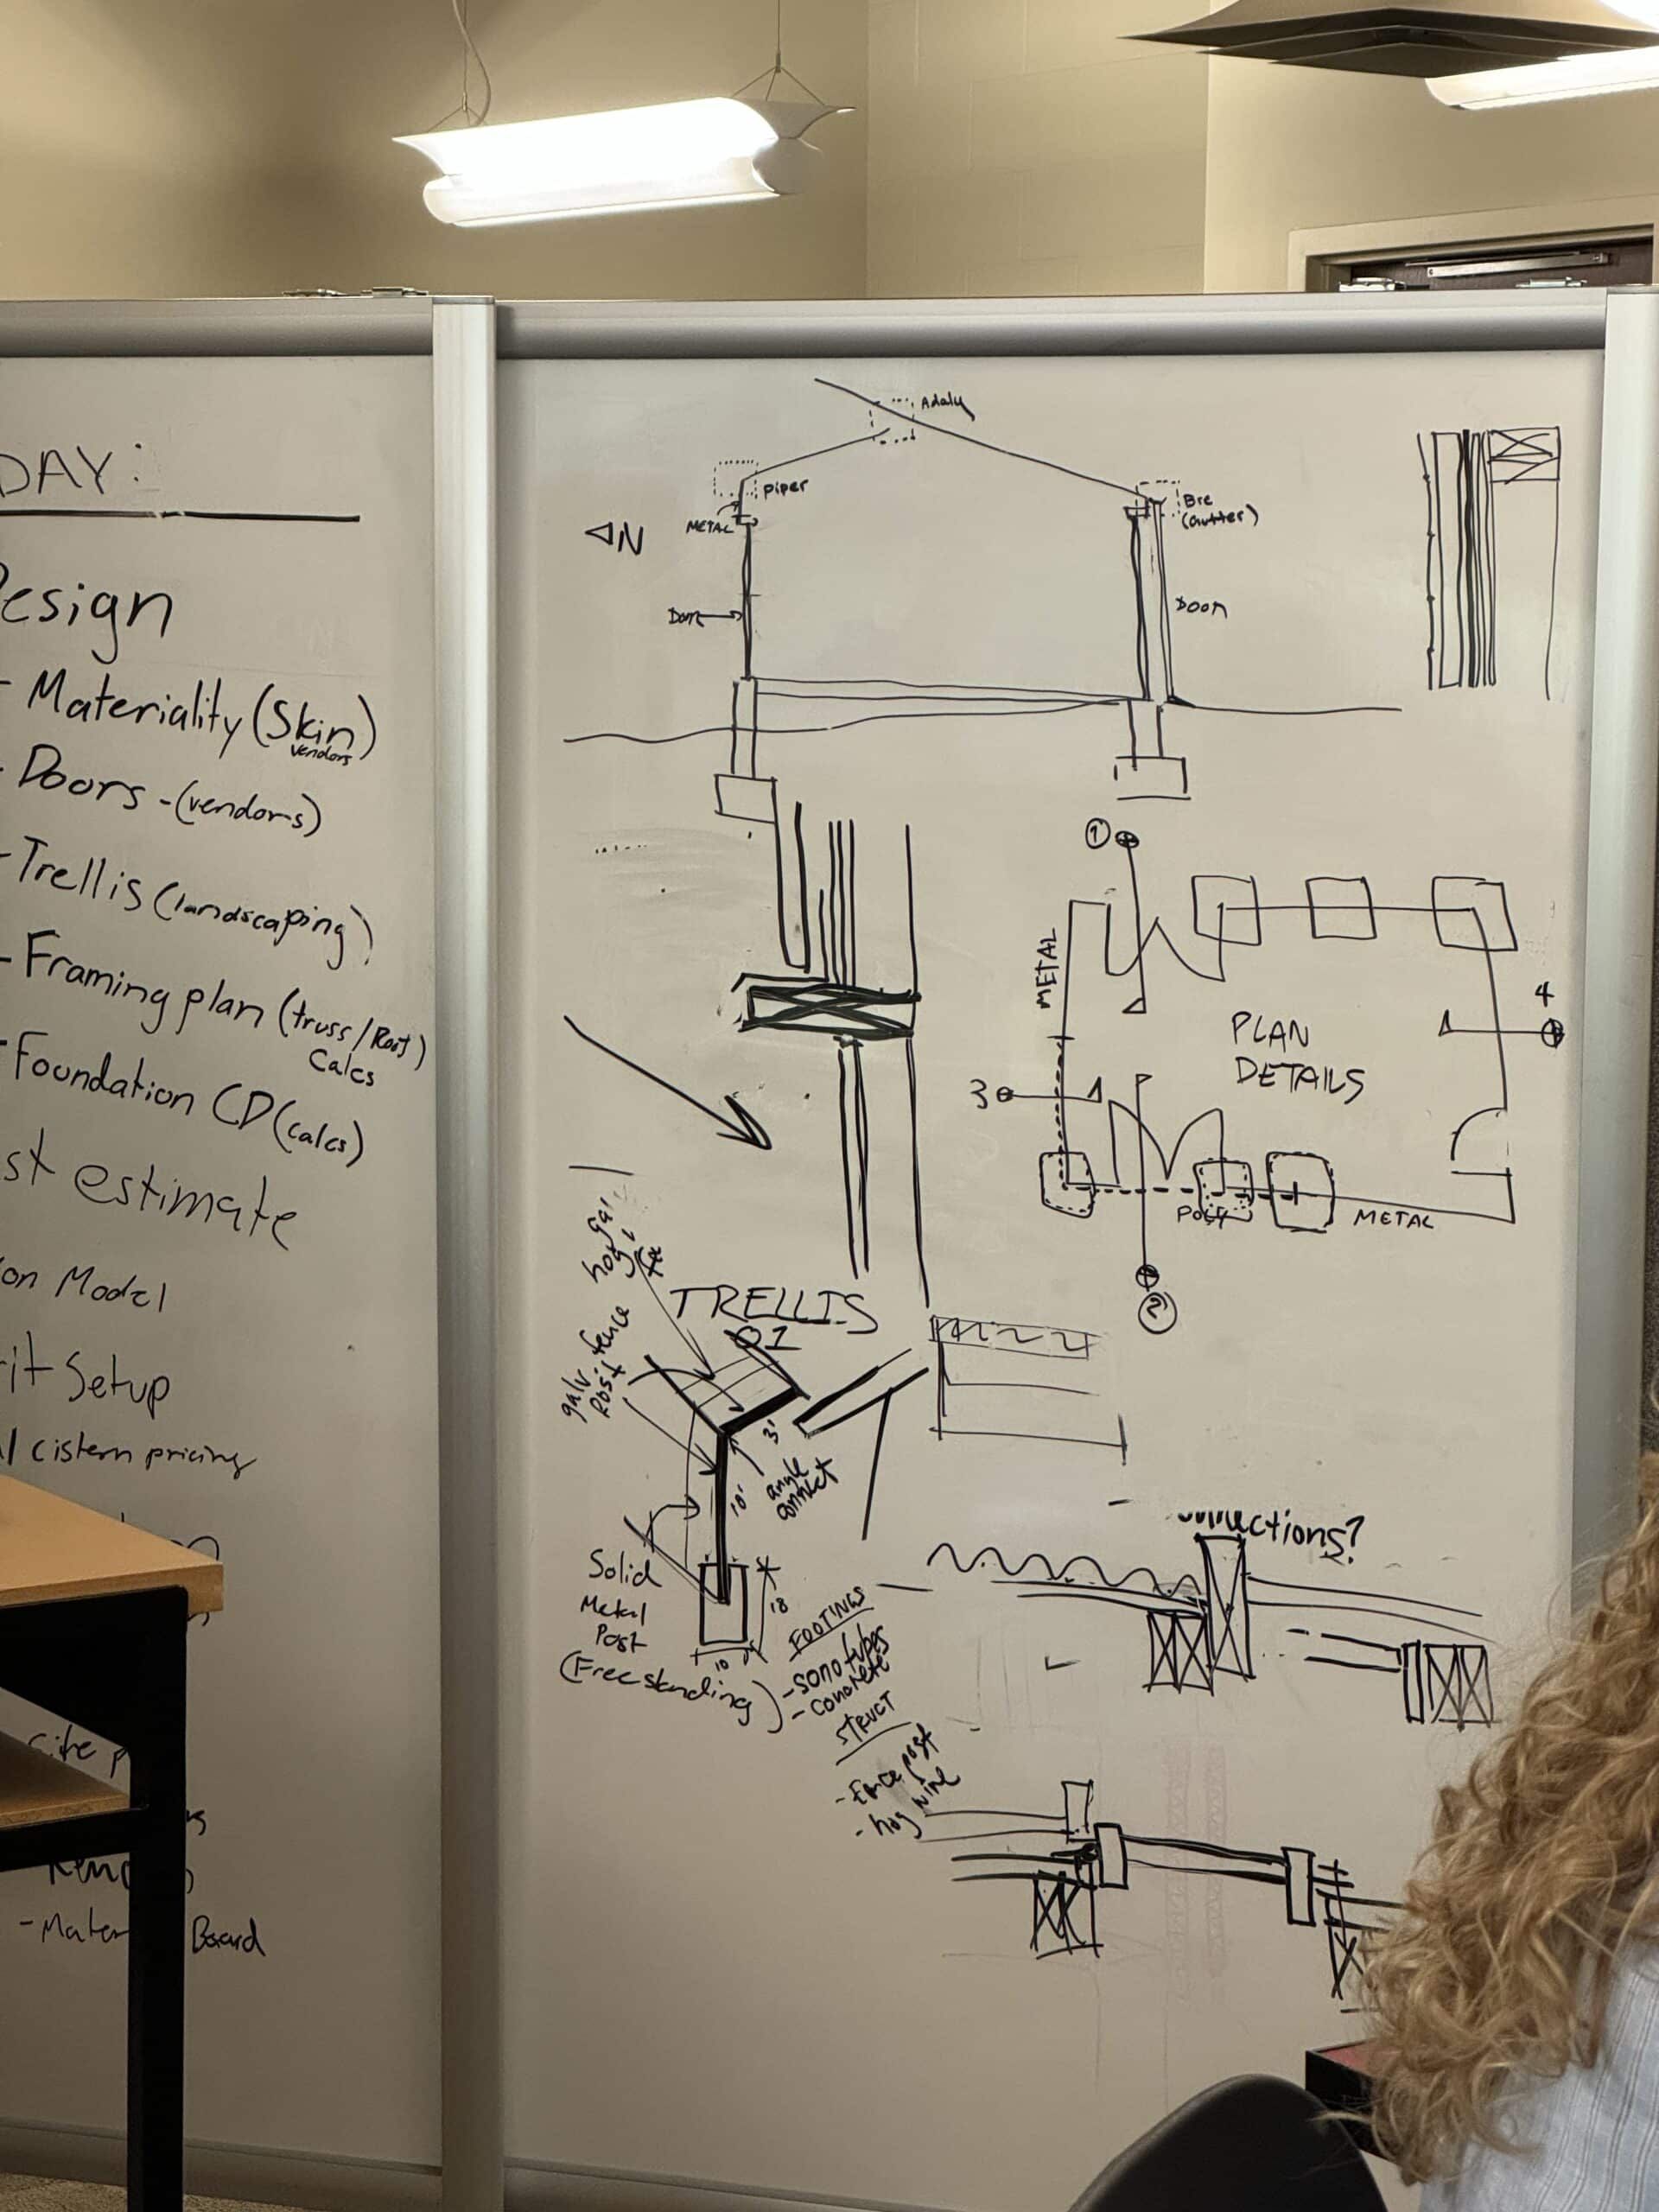 DAY:
esign
- Materiality (Skin)
vendors
- Doors - (vendors)
- Trellis (landscaping)
- Framing plan (truss/Roof)
Calcs
- Foundation CD (calcs)
st estimate
on Model
it Setup
l cistern pricing
site p
- Mater
Board
Adaly
piper
METAL
Bre
(Gutter)
N
Door
Door
1
METAL
PLAN
DETAILS
4
3
POST
METAL
2
TRELLIS
01
galv. fence
Post
3'
angle
connect
10'
Solid
Metal
Post
(Free standing)
18
10
FOOTINGS
- sono tubes
- concrete
STRUCT
- fence post
- hog wire
ections?